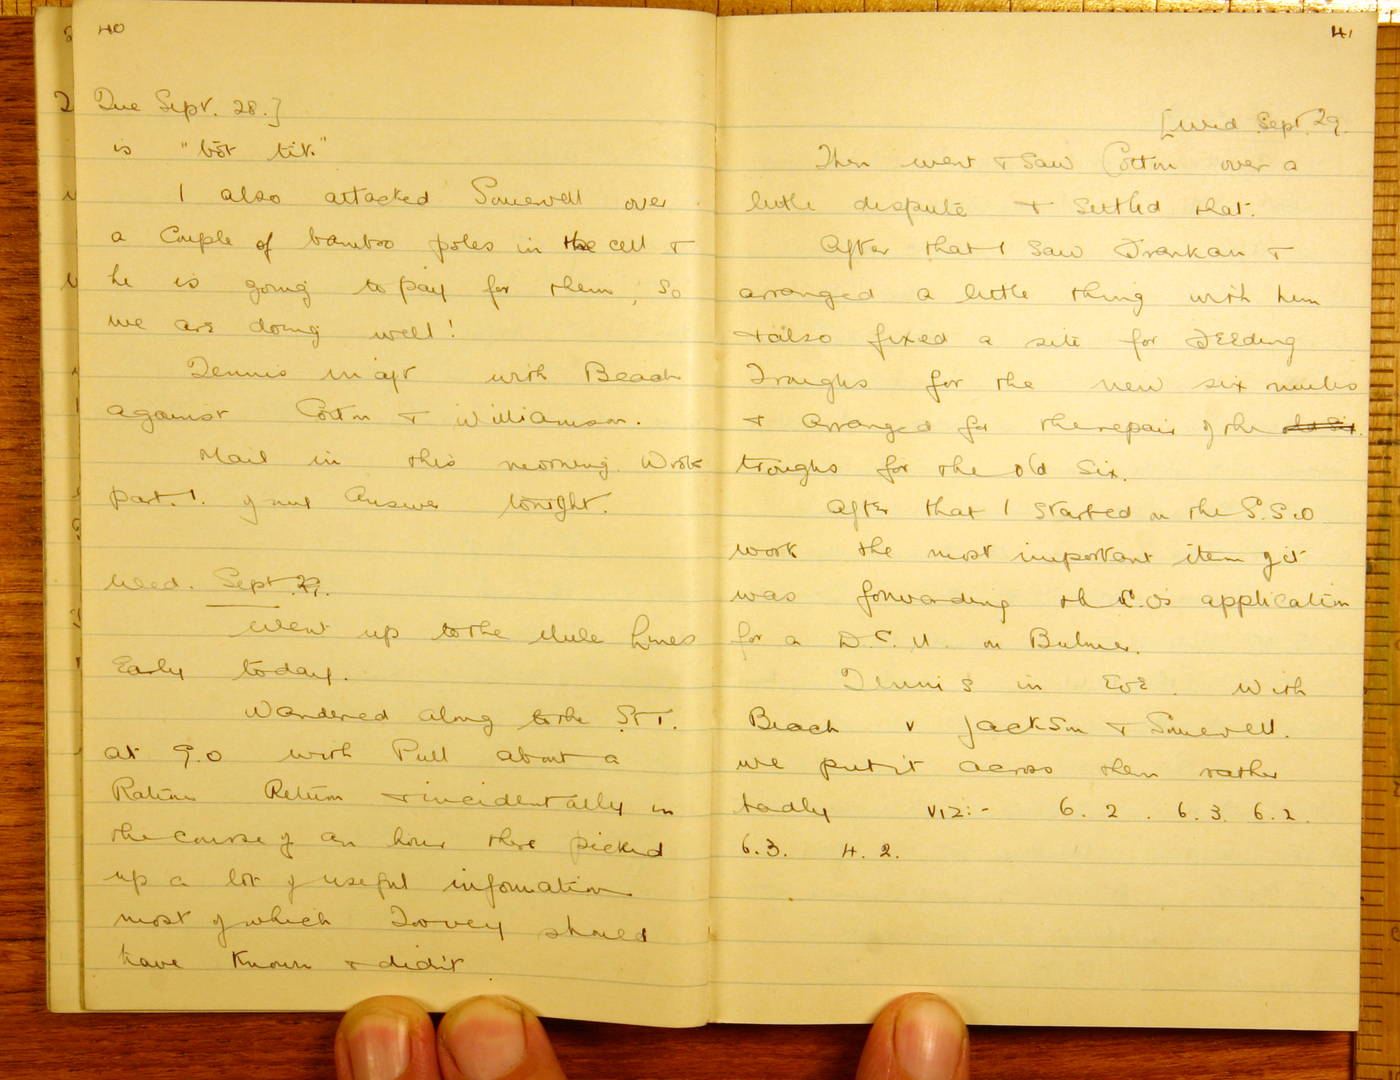 40
Tue Sept. 28.]
is "bōt tik."
I also attacked Somervell over
a couple of bamboo poles in the cell &
he is going to pay for them, so
we are doing well!
Tennis in aft with Beach
against Cotton & Williamson.
Mail in this morning. Wrote
part 1. of my answer tonight.
Wed. Sept 29.
Went up to the Mule Lines
Early today.
Wandered along to the S & T.
at 9.0 with Pull about a
Ration Return & incidentally in
the course of an hour there picked
up a lot of useful information
most of which Toovey should
have known & didn't.
41
[Wed Sept 29.
Then went & saw Cotton over a
little dispute & settled that.
After that I saw Frankau &
arranged a little thing with him
& also fixed a site for Feeding
Troughs for the new six mules
& arranged for the repair of the
troughs for the old six.
After that I started on the S.S.O
work the most important item of it
was forwarding the C.O's application
for a D.C.M. on Bulmer.
Tennis in Eve. With
Beach v Jackson & Somervell.
we put it across them rather
badly viz:- 6.2. 6.3. 6.2.
6.3. 4.2.